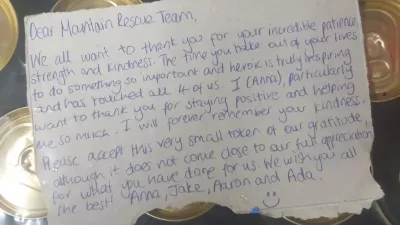 Dear Mountain Rescue Team,
We all want to thank you for your incredible patience,
strength and kindness. The time you take out of your lives
to do something so important and heroic is truly inspiring
and has touched all 4 of us. I (Anna), particularly
want to thank you for staying positive and helping
me so much. I will forever remember your kindness.
Please accept this very small token of our gratitude
although it does not come close to our full appreciation
for what you have done for us. We wish you all
the best! Anna, Jake, Aaron and Ada.